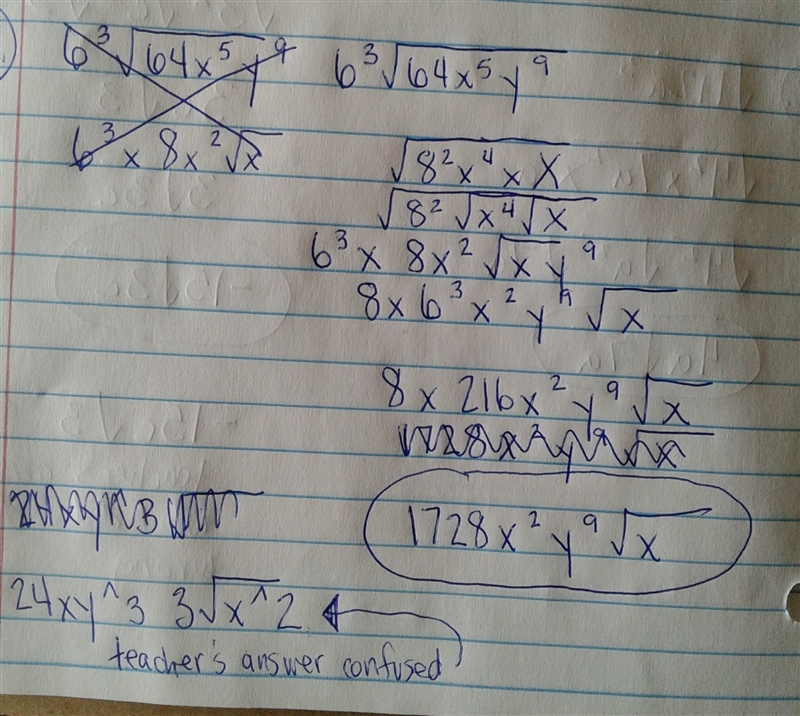 6³√64x⁵y⁹
6³ x 8x²√x
6³√64x⁵y⁹
√8²x⁴ x X
√8² √x⁴ √x
6³ x 8x² √x y⁹
8 x 6³ x² y⁹ √x
8 x 216x² y⁹ √x
1728x²y⁹√x
1728x² y⁹ √x
24xy^3 3√x^2
teacher's answer confused